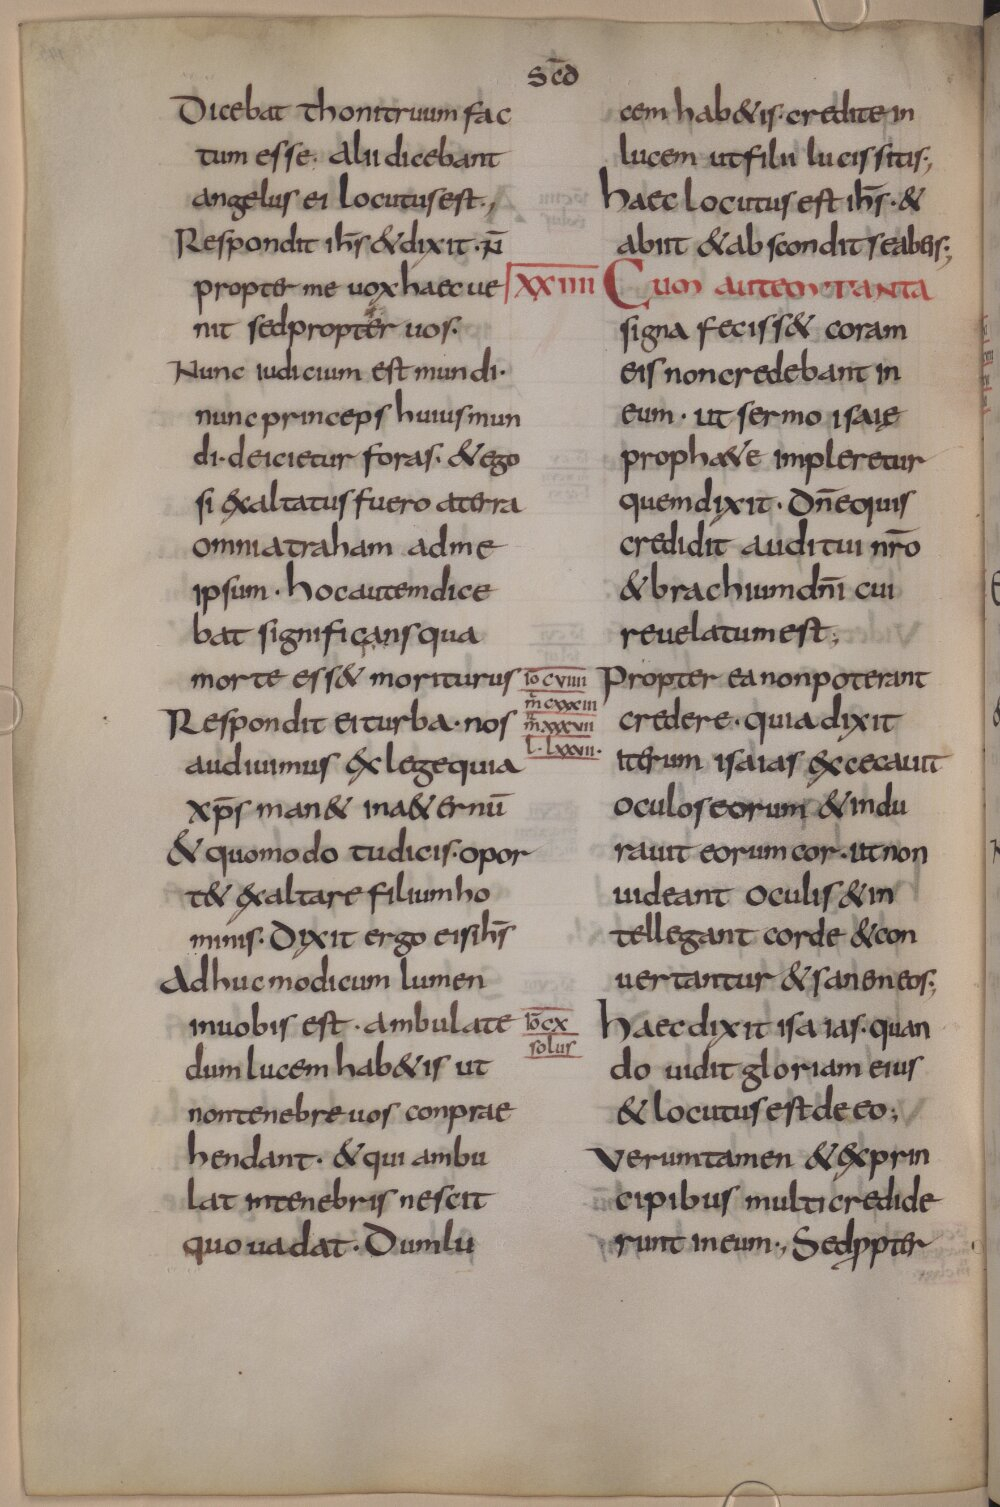 Scd
Dicebat thonitruum fac
tum esse. alii dicebant
angelus ei locutus est.,
Respondit ihs & dixit. n̄
propter me uox haec ue
nit sed propter uos.
Nunc iudicium est mundi.
nunc princeps huius mun
di. deicietur foras. & ego
si exaltatus fuero a terra
omnia traham ad me
ipsum. hoc autem dice
bat significans qua
morte ess& moriturus
Respondit ei turba. nos
audiuimus ex lege quia
xp̄s man& in a&ernū
& quomodo tu dicis. opor
t& exaltare filium ho
minis. Dixit ergo eis ihs̄
Adhuc modicum lumen
in uobis est. ambulate
dum lucem hab&is ut
non tenebre uos conprae
hendant. & qui ambu
lat in tenebris nescit
quo uadat. Dum lu
iō cviiii
m̄ cxxxiii
m̄ xxxvii
l. lxxvii.
iō cx
solus
cem hab&is. credite in
lucem ut filii lucis sitis.,
haec locutus est ihs̄. &
abiit & abscondit se ab eis;
XXIIII Cum autem tanta
signa feciss& coram
eis non credebant in
eum. ut sermo isaię
proph&ae impleretur
quem dixit. Dn̄e quis
credidit auditui nr̄o
& brachium dn̄i cui
reuelatum est;
Propter ea non poterant
credere. quia dixit
iterum isaias excecauit
oculos eorum & indu
rauit eorum cor. ut non
uideant oculis & in
tellegant corde & con
uertantur & sanem eos;
haec dixit isaias. quan
do uidit gloriam eius
& locutus est de eo;
Verumtamen & ex prin
cipibus multi credide
runt in eum., Sed ꝓpter